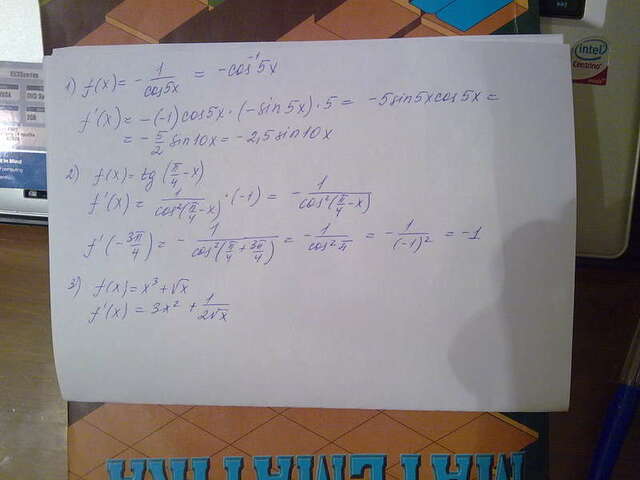 1) f(x) = - 1/cos5x = -cos⁻¹5x
f'(x) = -(-1)cos5x·(-sin5x)·5 = -5sin5xcos5x =
= - 5/2 sin10x = -2,5sin10x
2) f(x) = tg(π/4 -x)
f'(x) = 1/cos²(π/4 -x) ·(-1) = - 1/cos²(π/4 -x)
f'(- 3π/4) = - 1/cos²(π/4 + 3π/4) = - 1/cos²π = - 1/(-1)² = -1
3) f(x) = x³ + √x
f'(x) = 3x² + 1/2√x
intel
Centrino
МАТЕМАТИКА